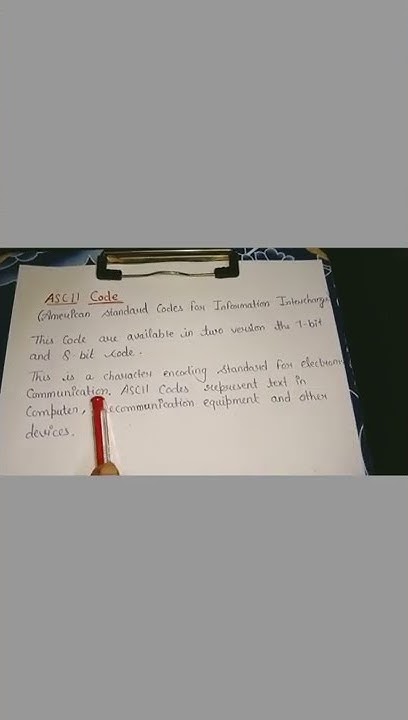 ASCII Code
(American standard Codes for Information Interchange
This Code are available in two version the 7-bit
and 8-bit code.
This is a character encoding standard for electronic
Communication. ASCII Codes represent text in
Computer, ecommunication equipment and other
devices.